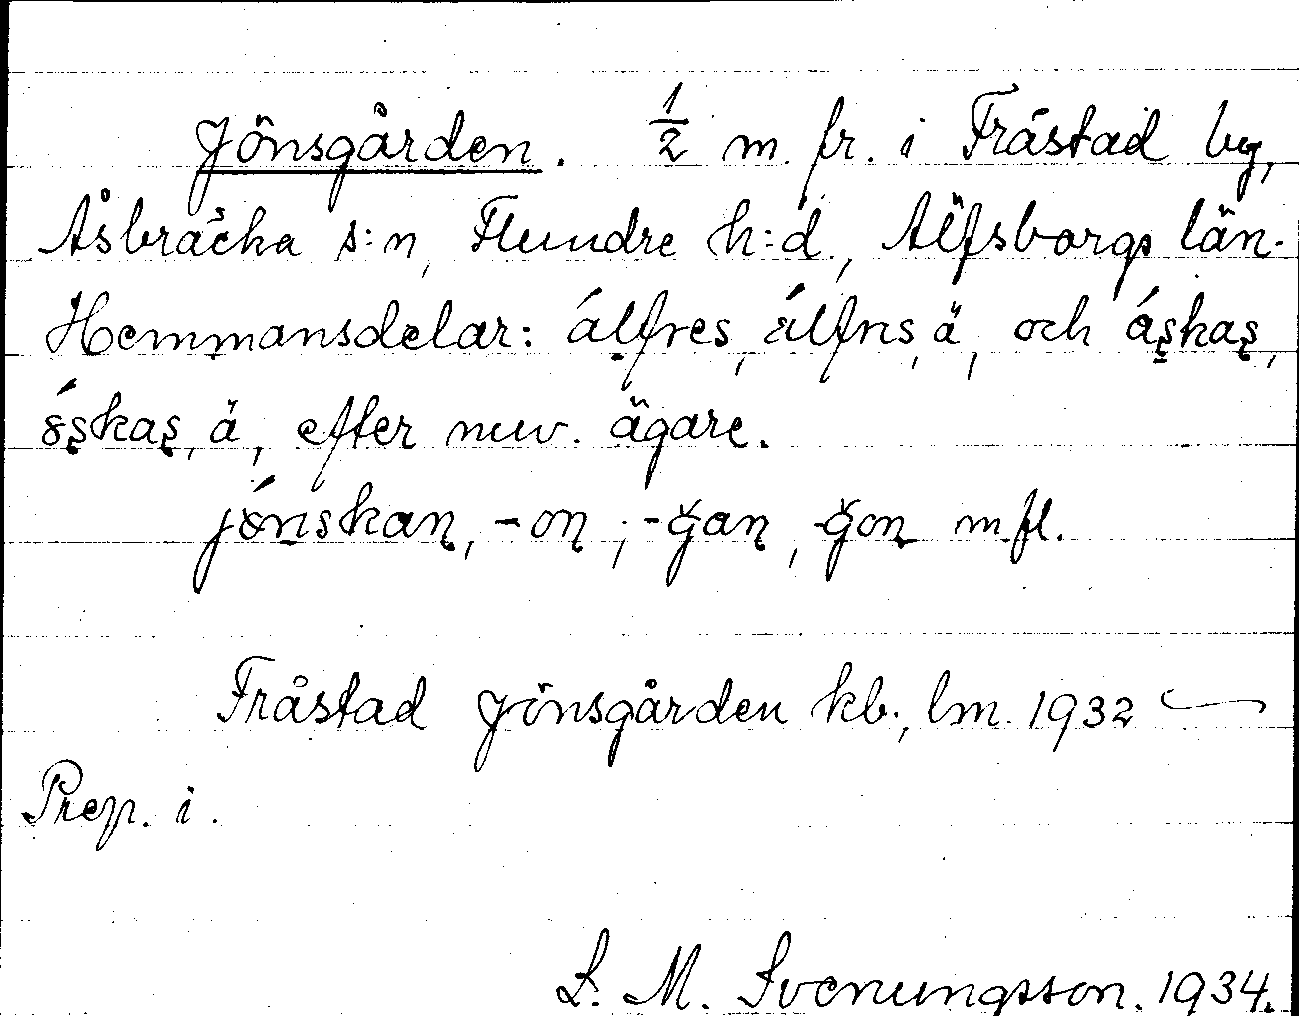 Jönsgården. 1/2 m. fr. i Fråstad by,
Åsbräcka s:n, Flundre h:d., Älfsborgs län.
Hemmansdelar: álfres, álfrıs, ä, och áşkaş,
óşkaş, ä, efter nuv. ägare.
jǿnskaṇ, -oṇ; -ğaṇ, -ğoṇ m.fl.
Fråstad Jönsgården kb., lm. 1932
Prep. i.
S. M. Svenungsson. 1934.